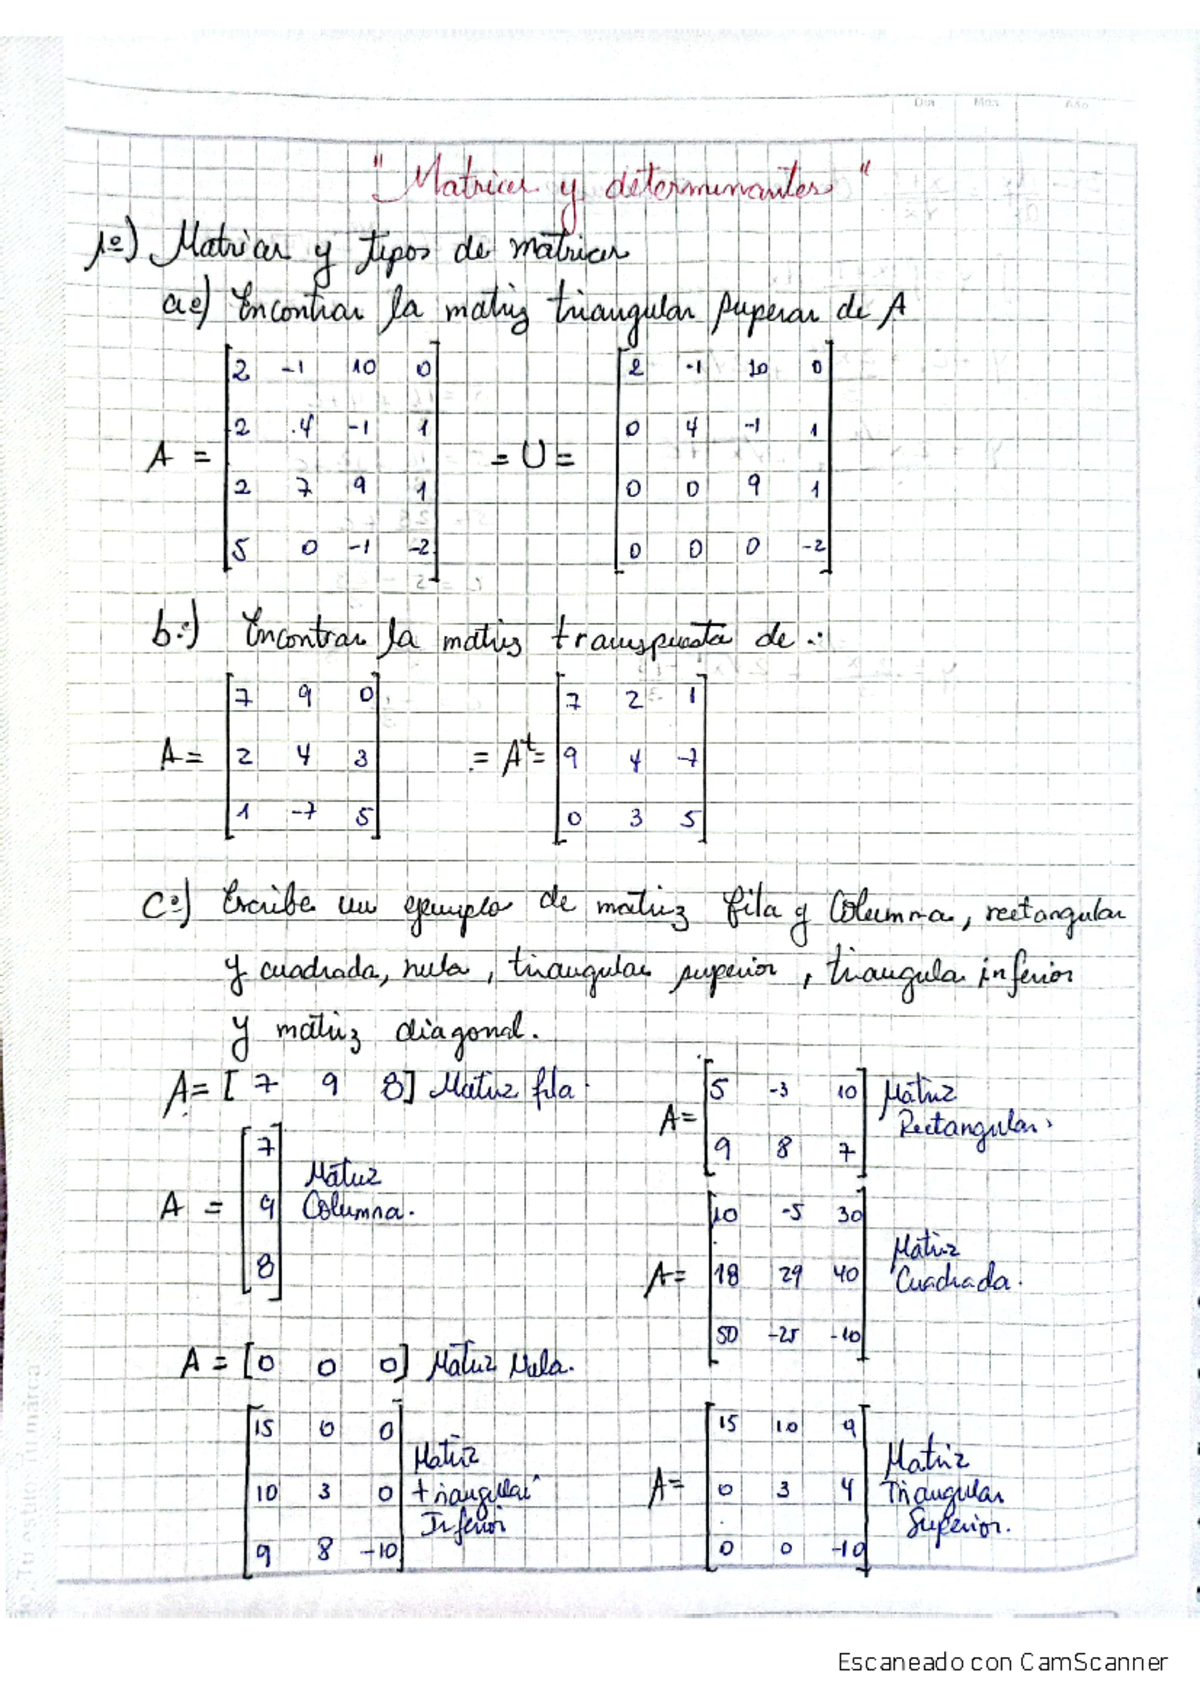 Día Mes Año
"Matrices y determinantes"
1º) Matrices y tipos de matrices
aº) Encontrar la matriz triangular superar de A
2 -1 10 0
2 4 -1 1
2 7 9 1
5 0 -1 -2
A = = U =
2 -1 10 0
0 4 -1 1
0 0 9 1
0 0 0 -2
b.) Encontrar la matriz transpuesta de :
7 9 0
A = 2 4 3
1 -7 5
7 2 1
= Aᵗ = 9 4 -7
0 3 5
Cº) Escribe un ejemplo de matriz fila y Columna, rectangular
y cuadrada, nula, triangular superior, triangula inferior
y matriz diagonal.
A = [ 7 9 8] Matriz fila
5 -3 10 Matriz
A = Rectangular.
9 8 7
7
Matriz
A = 9 Columna.
8
10 -5 30
A = 18 29 40 Matriz Cuadrada.
50 -25 -10
A = [0 0 0] Matriz Nula.
15 0 0
10 3 0
9 8 -10
Matriz
triangular
Inferior
15 10 9
A = 0 3 4
0 0 -10
Matriz
Triangular
Superior.
Tu estilo tu marca
Escaneado con CamScanner